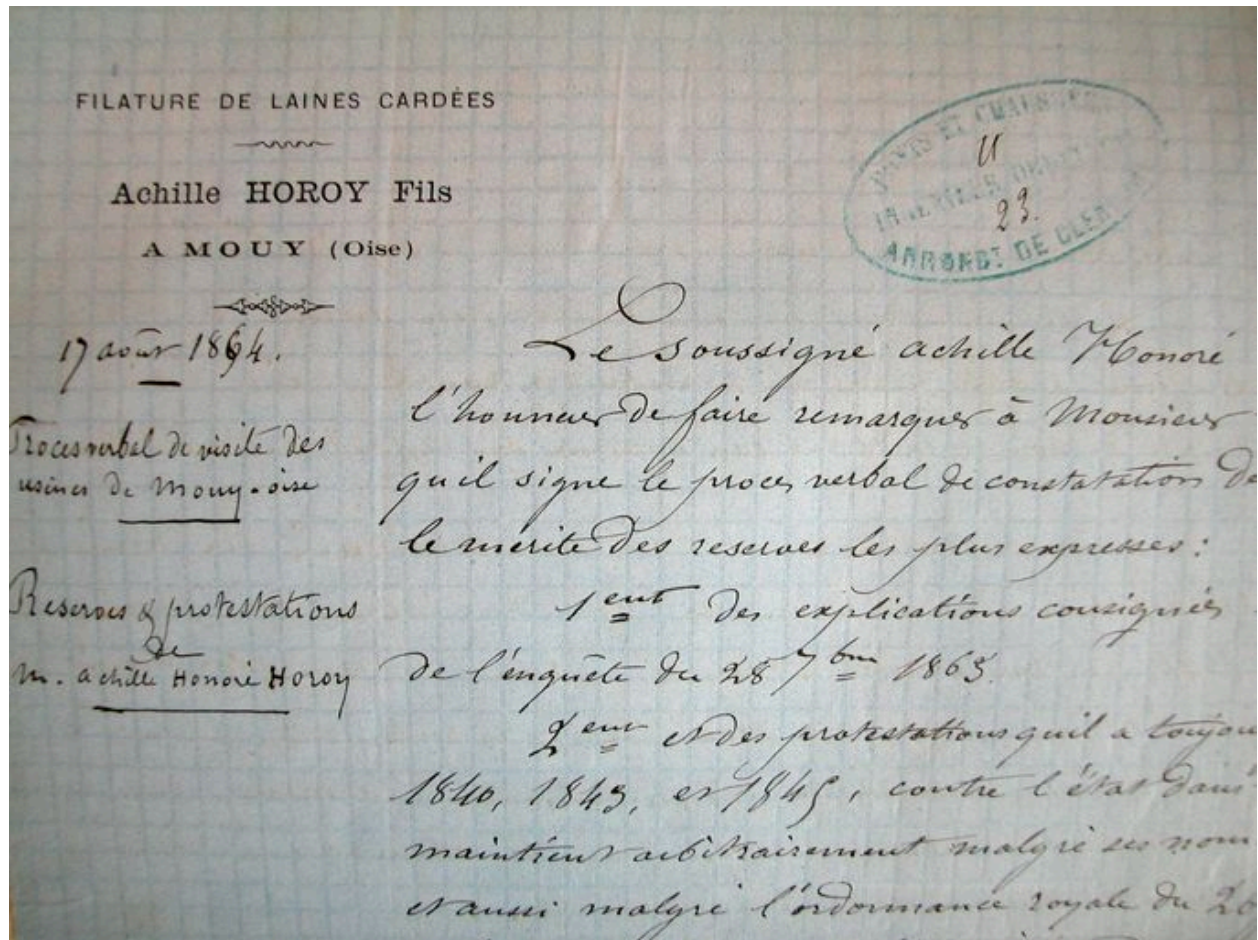 FILATURE DE LAINES CARDÉES
Achille HOROY Fils
A MOUY (Oise)
PONTS ET CHAUSSÉES
11
23.
ARRONDT DE CLER
17 août 1864.
Procesverbal de visite des
usines de Mouy-oise
Reserves & protestations
de
m. achille Honoré Horoy
Le soussigné achille Honoré
l'honneur de faire remarquer à Monsieur
qu'il signe le proces verbal de constatation de
le merite des reserves les plus expresses :
1ent des explications consignées
de l'enquête du 28 7bre 1863.
2ent et des protestations qu'il a toujou
1840, 1843, et 1845, contre l'état dans
maintient arbitrairement malgré ses nom
et aussi malgré l'ordonnance royale du 20